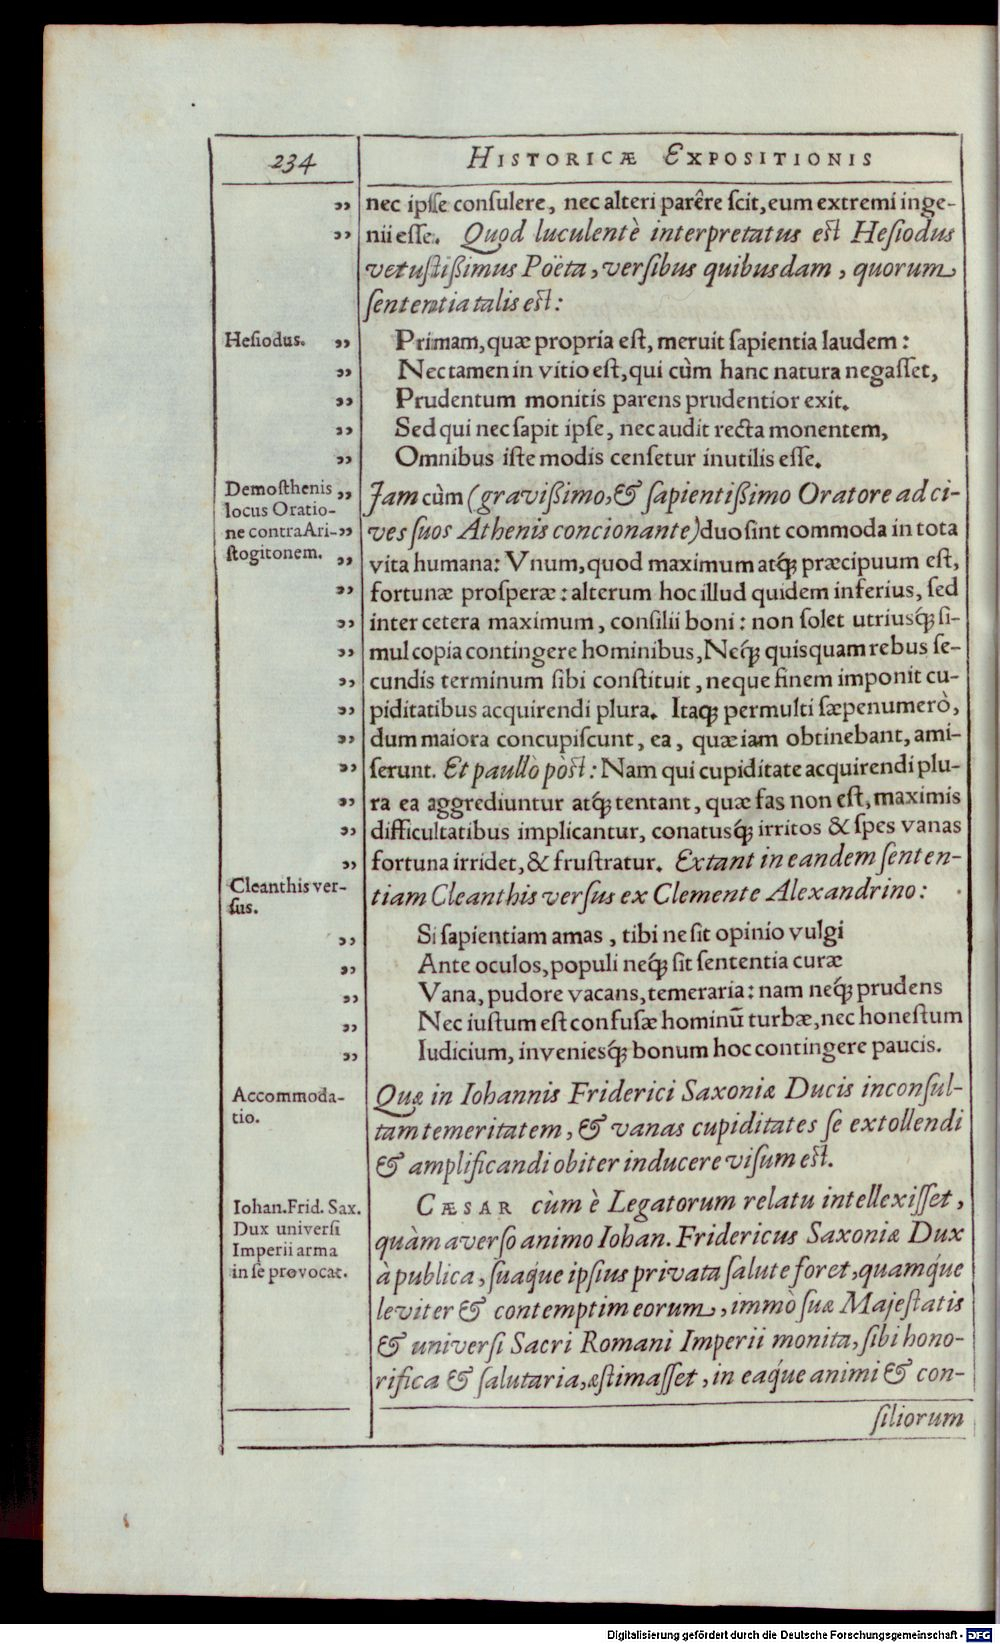 234
HISTORICÆ EXPOSITIONIS
„ nec ipſſe conſulere, nec alteri parêre ſcit, eum extremi inge-
„ nii eſſe. Quod luculentè interpretatus est Heſiodus
vetuſtißimus Poëta, verſibus quibusdam, quorum
ſententia talis est:
Heſiodus. „ Primam, quæ propria eſt, meruit ſapientia laudem:
„ Nec tamen in vitio eſt, qui cùm hanc natura negaſſet,
„ Prudentum monitis parens prudentior exit.
„ Sed qui nec ſapit ipſe, nec audit recta monentem,
„ Omnibus iſte modis cenſetur inutilis eſſe.
Demoſthenis „ Jam cùm (gravißimo, & ſapientißimo Oratore ad ci-
locus Oratio-
ne contra Ari- „ ves ſuos Athenis concionante) duo ſint commoda in tota
ſtogitonem. „ vita humana: Vnum, quod maximum atq́; præcipuum eſt,
„ fortunæ proſperæ: alterum hoc illud quidem inferius, ſed
„ inter cetera maximum, conſilii boni: non ſolet utriusq́; ſi-
„ mul copia contingere hominibus, Neq́; quisquam rebus ſe-
„ cundis terminum ſibi conſtituit, neque finem imponit cu-
„ piditatibus acquirendi plura. Itaq́; permulti ſæpenumerò,
„ dum maiora concupiſcunt, ea, quæ iam obtinebant, ami-
„ ſerunt. Et paullò pòst: Nam qui cupiditate acquirendi plu-
„ ra ea aggrediuntur atq́; tentant, quæ fas non eſt, maximis
„ difficultatibus implicantur, conatusq́; irritos & ſpes vanas
„ fortuna irridet, & fruſtratur. Extant in eandem ſenten-
Cleanthis ver-
ſus.
tiam Cleanthis verſus ex Clemente Alexandrino:
„ Si ſapientiam amas, tibi ne ſit opinio vulgi
„ Ante oculos, populi neq́; ſit ſententia curæ
„ Vana, pudore vacans, temeraria: nam neq́; prudens
„ Nec iuſtum eſt confuſæ hominū turbæ, nec honeſtum
„ Iudicium, inveniesq́; bonum hoc contingere paucis.
Accommoda-
tio.
Quæ in Iohannis Friderici Saxoniæ Ducis inconſul-
tam temeritatem, & vanas cupiditates ſe extollendi
& amplificandi obiter inducere viſum est.
Iohan. Frid. Sax.
Dux universi
Imperii arma
in ſe provocat.
CÆSAR cùm è Legatorum relatu intellexiſſet,
quàm averſo animo Iohan. Fridericus Saxoniæ Dux
à publica, ſuaq́ue ipſius privata ſalute foret, quamq́ue
leviter & contemptim eorum, immò ſuæ Majeſtatis
& univerſi Sacri Romani Imperii monita, ſibi hono-
rifica & ſalutaria, æſtimaſſet, in eaq́ue animi & con-
ſiliorum
Digitalisierung gefördert durch die Deutsche Forschungsgemeinschaft - DFG